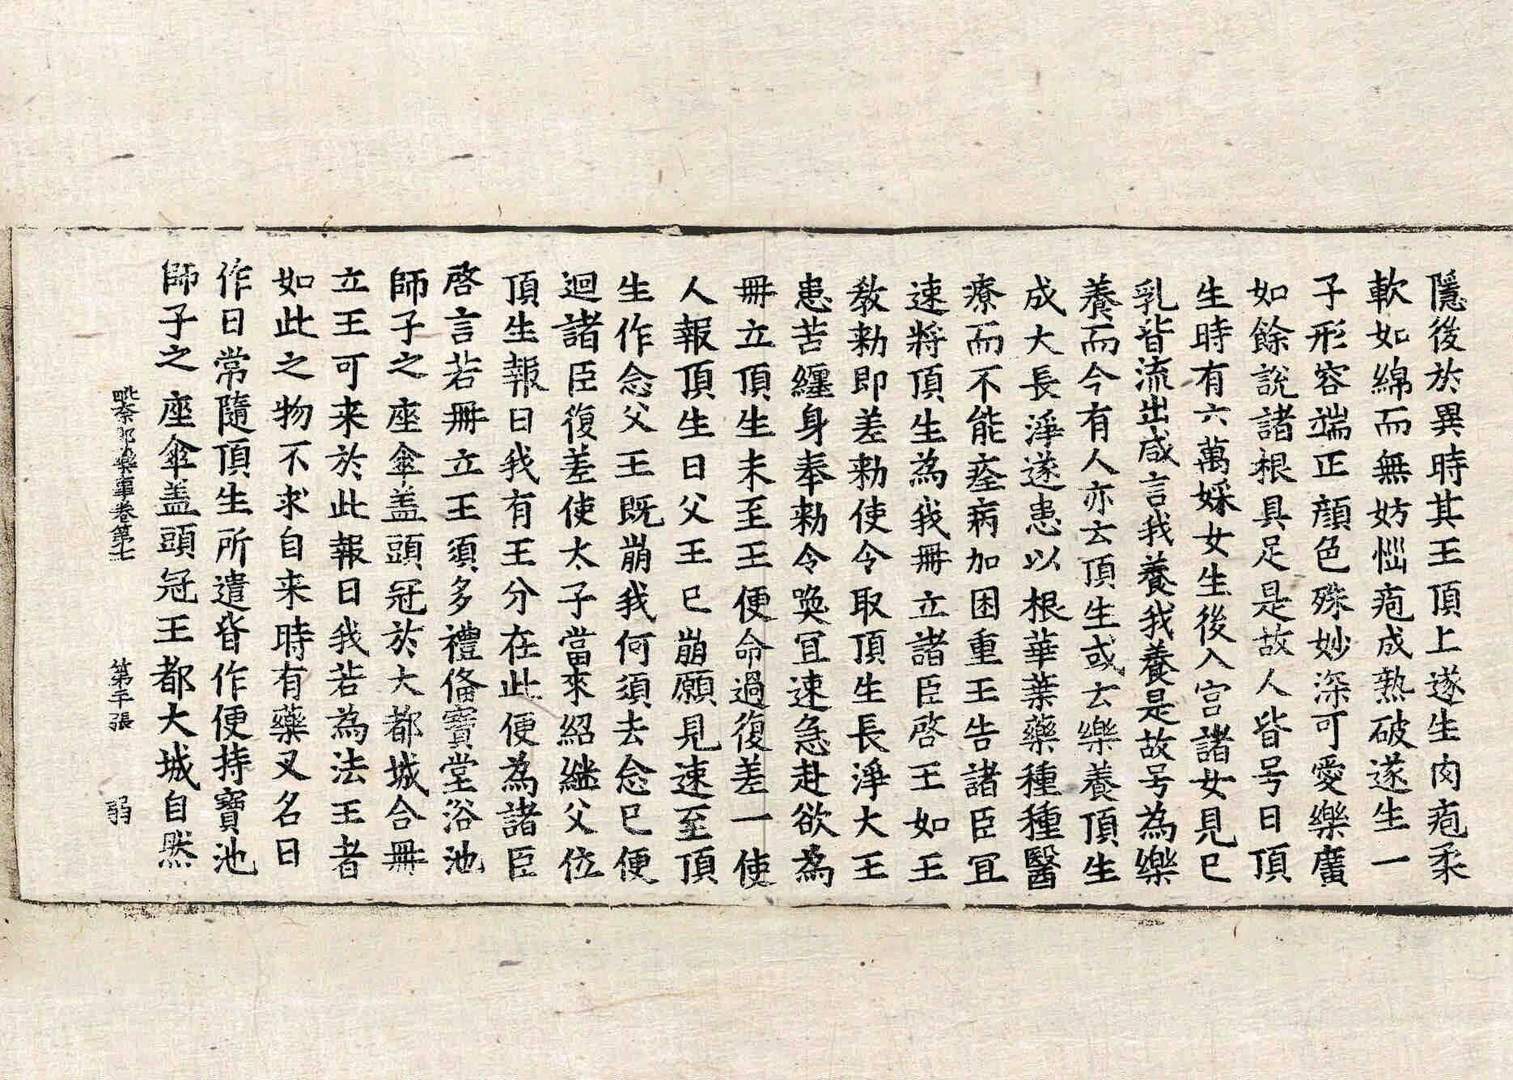 隱後於異時其王頂上遂生肉疱柔
軟如綿而無妨惱疱成熟破遂生一
子形容端正顔色殊妙深可愛樂廣
如餘說諸根具足是故人皆号曰頂
生時有六萬婇女生後入宫諸女見已
乳皆流出咸言我養我養是故号為樂
養而今有人亦云頂生或云樂養頂生
成大長淨遂患以根華葉藥種種醫
療而不能痊病加困重王告諸臣冝
速將頂生為我冊立諸臣啓王如王
敎勑即差勑使令取頂生長淨大王
患苦纏身奉勑令喚冝速急赴欲為
冊立頂生未至王便命過復差一使
人報頂生曰父王已崩願見速至頂
生作念父王既崩我何須去念已便
迴諸臣復差使太子當來紹継父位
頂生報曰我有王分在此便為諸臣
啓言若冊立王須多禮俻寶堂浴池
師子之座傘盖頭冠於大都城合冊
立王可来於此報曰我若為法王者
如此之物不求自来時有藥叉名曰
作日常隨頂生所遣皆作便持寶池
師子之座傘盖頭冠王都大城自然
毗奈耶藥事卷第七 第二張 弱